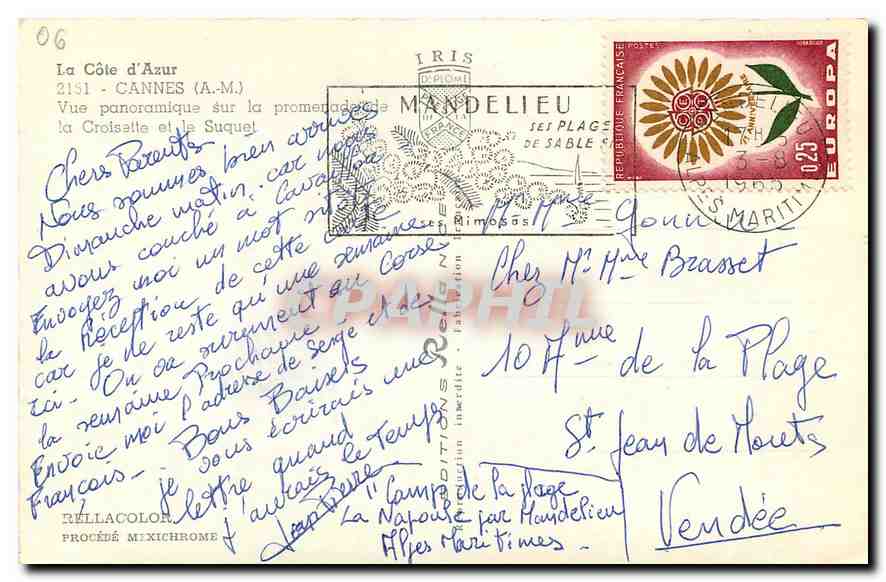 06
La Côte d'Azur
2151 - CANNES (A.-M.)
Vue panoramique sur la promenade de
la Croisette et le Suquet
IRIS
DIPLOME
FRANCE
MANDELIEU
SES PLAGES
DE SABLE FIN
ses Mimosas
REPUBLIQUE FRANÇAISE
POSTES
EUROPA
0,25
CEPT
17H
3-8
1965
ALPES MARITIMES
Chers Parents
Nous sommes bien arrivés
Dimanche matin. car nous
avons couché à Cavaillon
Envoyez moi un mot sitôt
la Réception de cette carte
car je ne reste qu'une semaine
ici - On va surement en Corse
la semaine Prochaine -
Envoie moi l'adresse de Serge et de
François - Bons Baisers
je vous écrirais une
lettre quand
j'aurais le Temps
Jean Pierre
"Camp de la plage
La Napoule par Mandelieu
Alpes Maritimes -
Mr Mme
Chez Mr Mme Brasset
10 Anne de la Plage
St Jean de Monts
Vendée
EDITIONS Rella NICE
Reproduction interdite - Fabrication
RELLACOLOR
PROCÉDÉ MEXICHROME
CPAPHIL